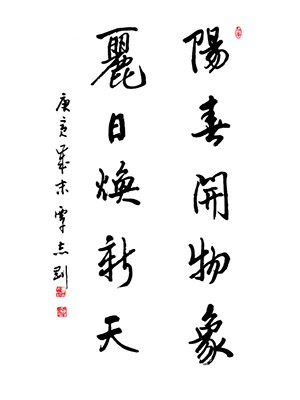 陽春開物象
麗日煥新天
庚寅歲末覃志剛